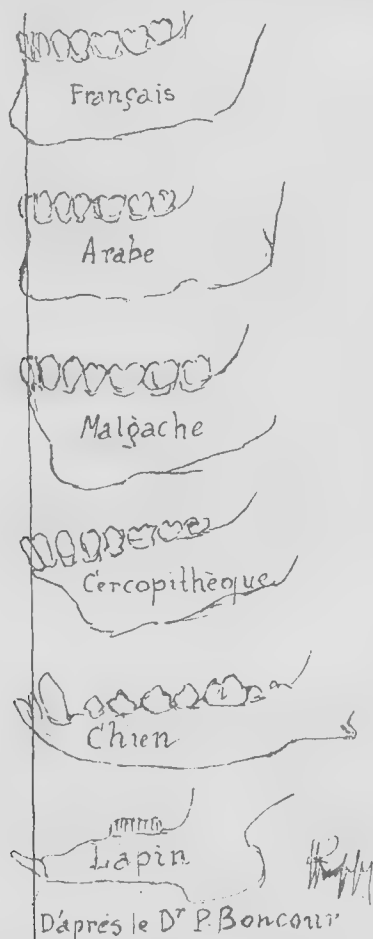 Français
Arabe
Malgache
Cercopithèque
Chien
Lapin
D'après le Dr P. Boncour